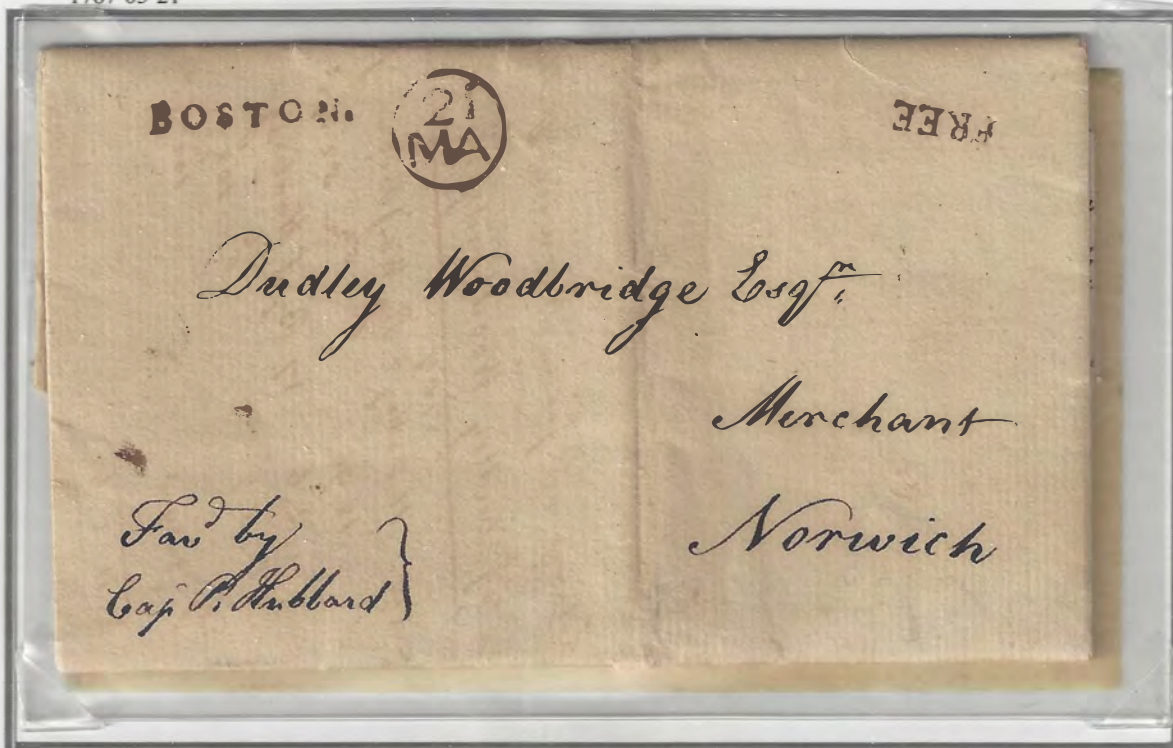 1787-05-21
BOSTON.
21
MA
FREE
Dudley Woodbridge Esqr.
Merchant
Norwich
Favd by
Cap P. Hubbard